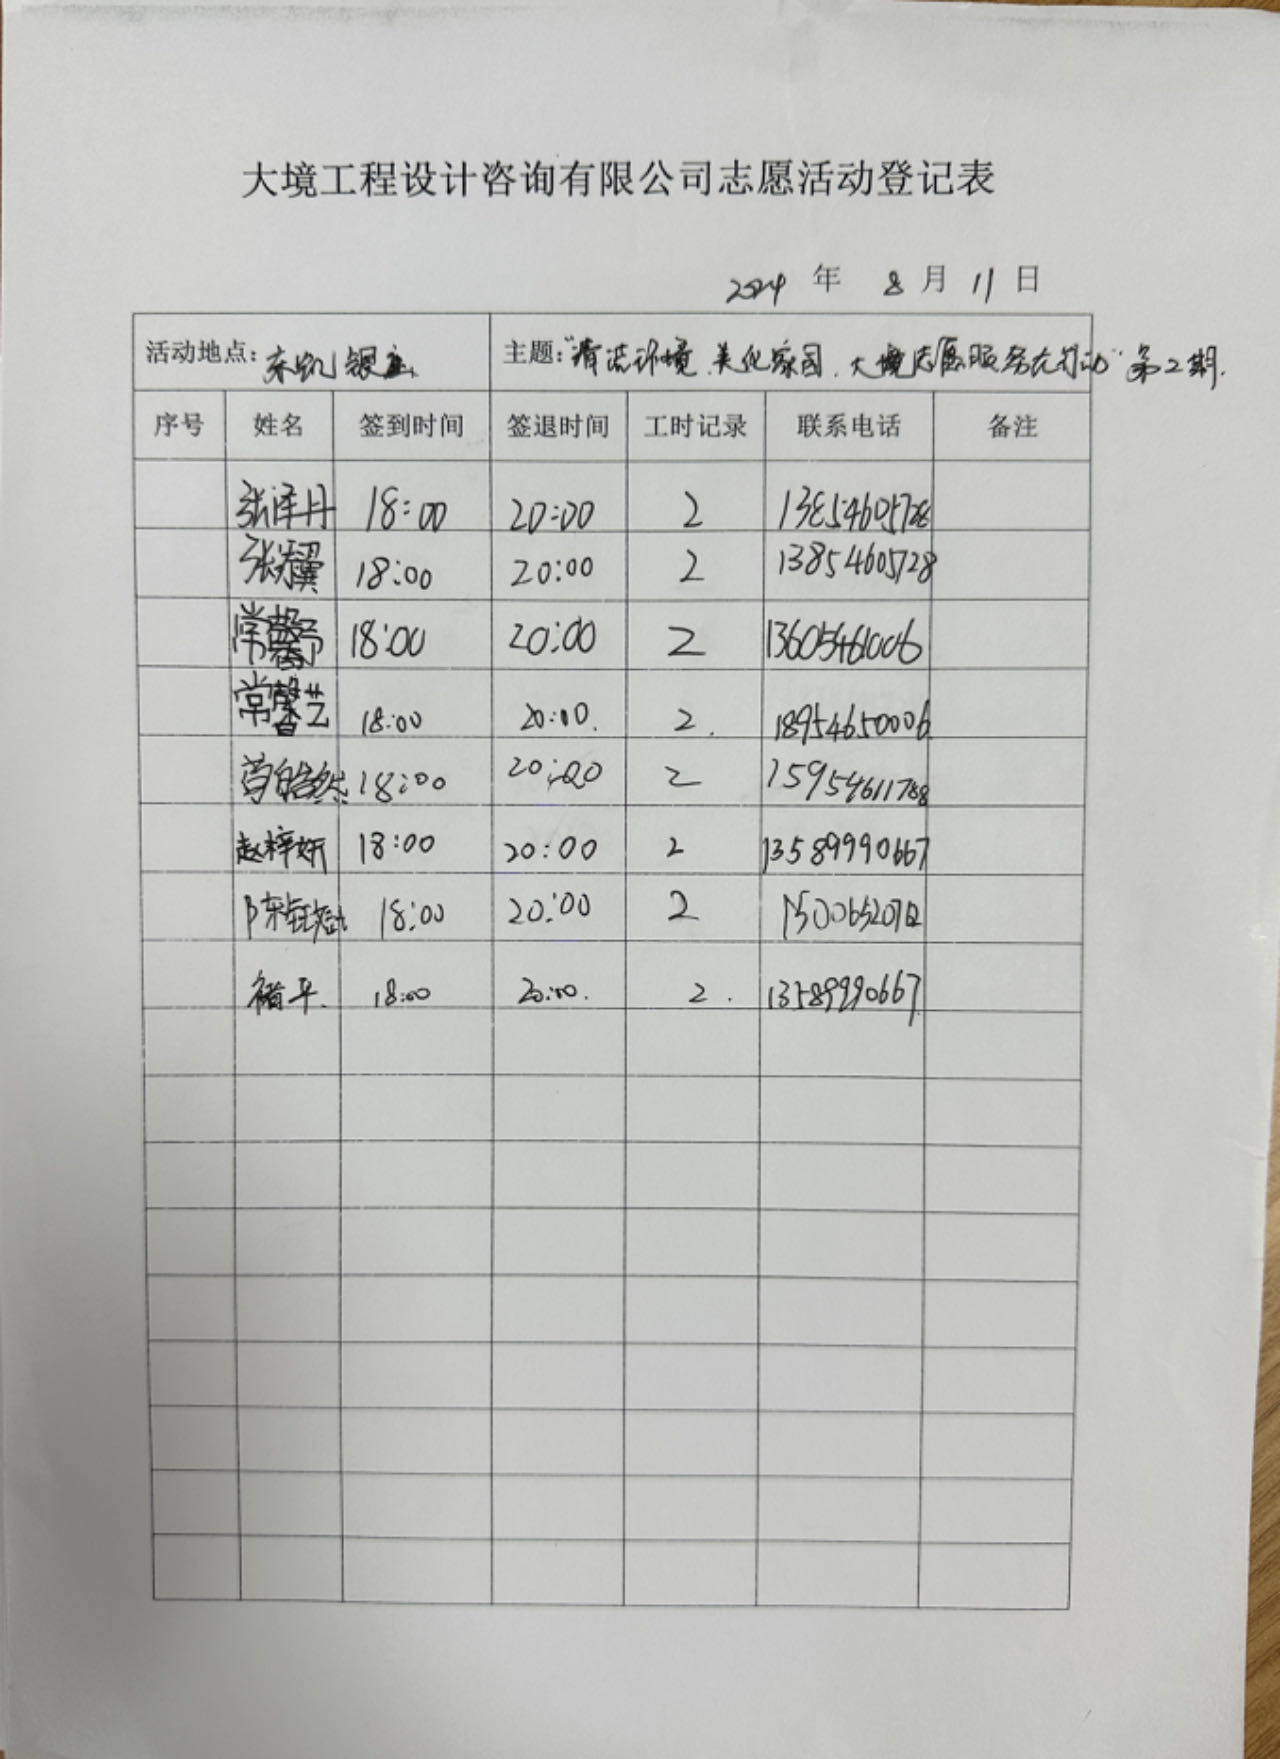 大境工程设计咨询有限公司志愿活动登记表
2024 年 8 月 11 日
活动地点: 东凯银座 主题:"清洁环境、美化家园、大境志愿服务在行动"第2期.
序号 姓名 签到时间 签退时间 工时记录 联系电话 备注
张泽丹 18:00 20:00 2 13854605728
张 翼 18:00 20:00 2 13854605728
常馨予 18:00 20:00 2 13605461006
常馨艺 18:00 20:00. 2. 18954650006
皓然 18:00 20:00 2 15954611788
赵梓妍 18:00 20:00 2 13589990667
陈 18:00 20:00 2
褚平. 18:00 20:00. 2. 13589990667